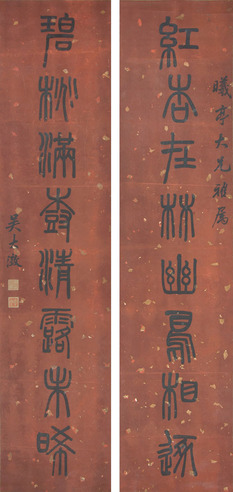 曦亭大兄雅屬
紅杏在林幽鳥相逐
碧桃滿樹清露未晞
吳大澂